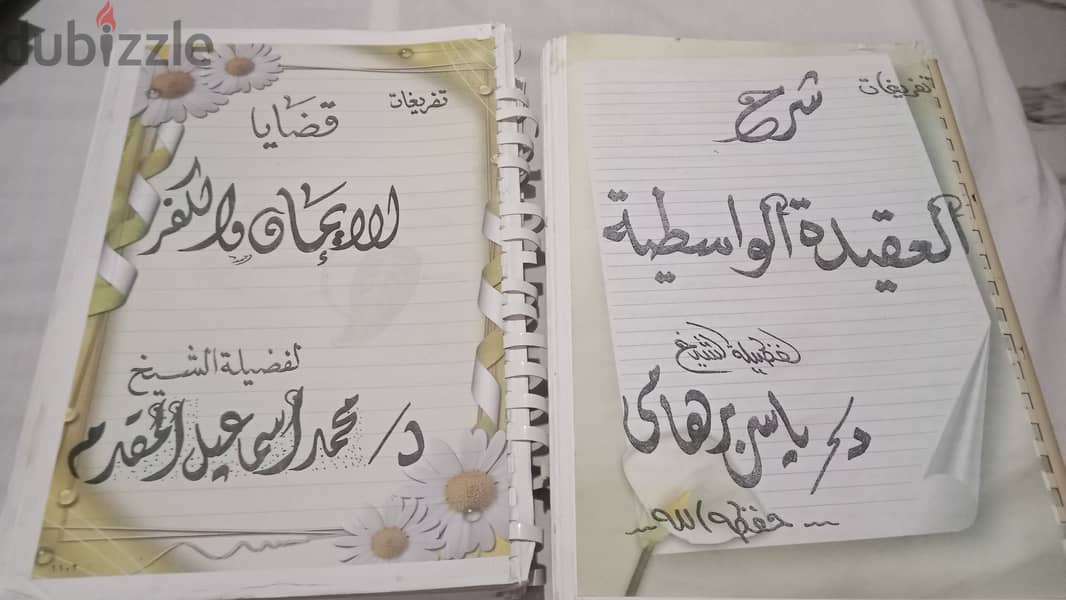 dubizzle
تفريغات
شرح
العقيدة الواسطية
لفضيلة الشيخ
د/ ياسر برهامى
حفظه الله
تفريغات
قضايا
الإيمان والكفر
لفضيلة الشيخ
د/ محمد اسماعيل المقدم